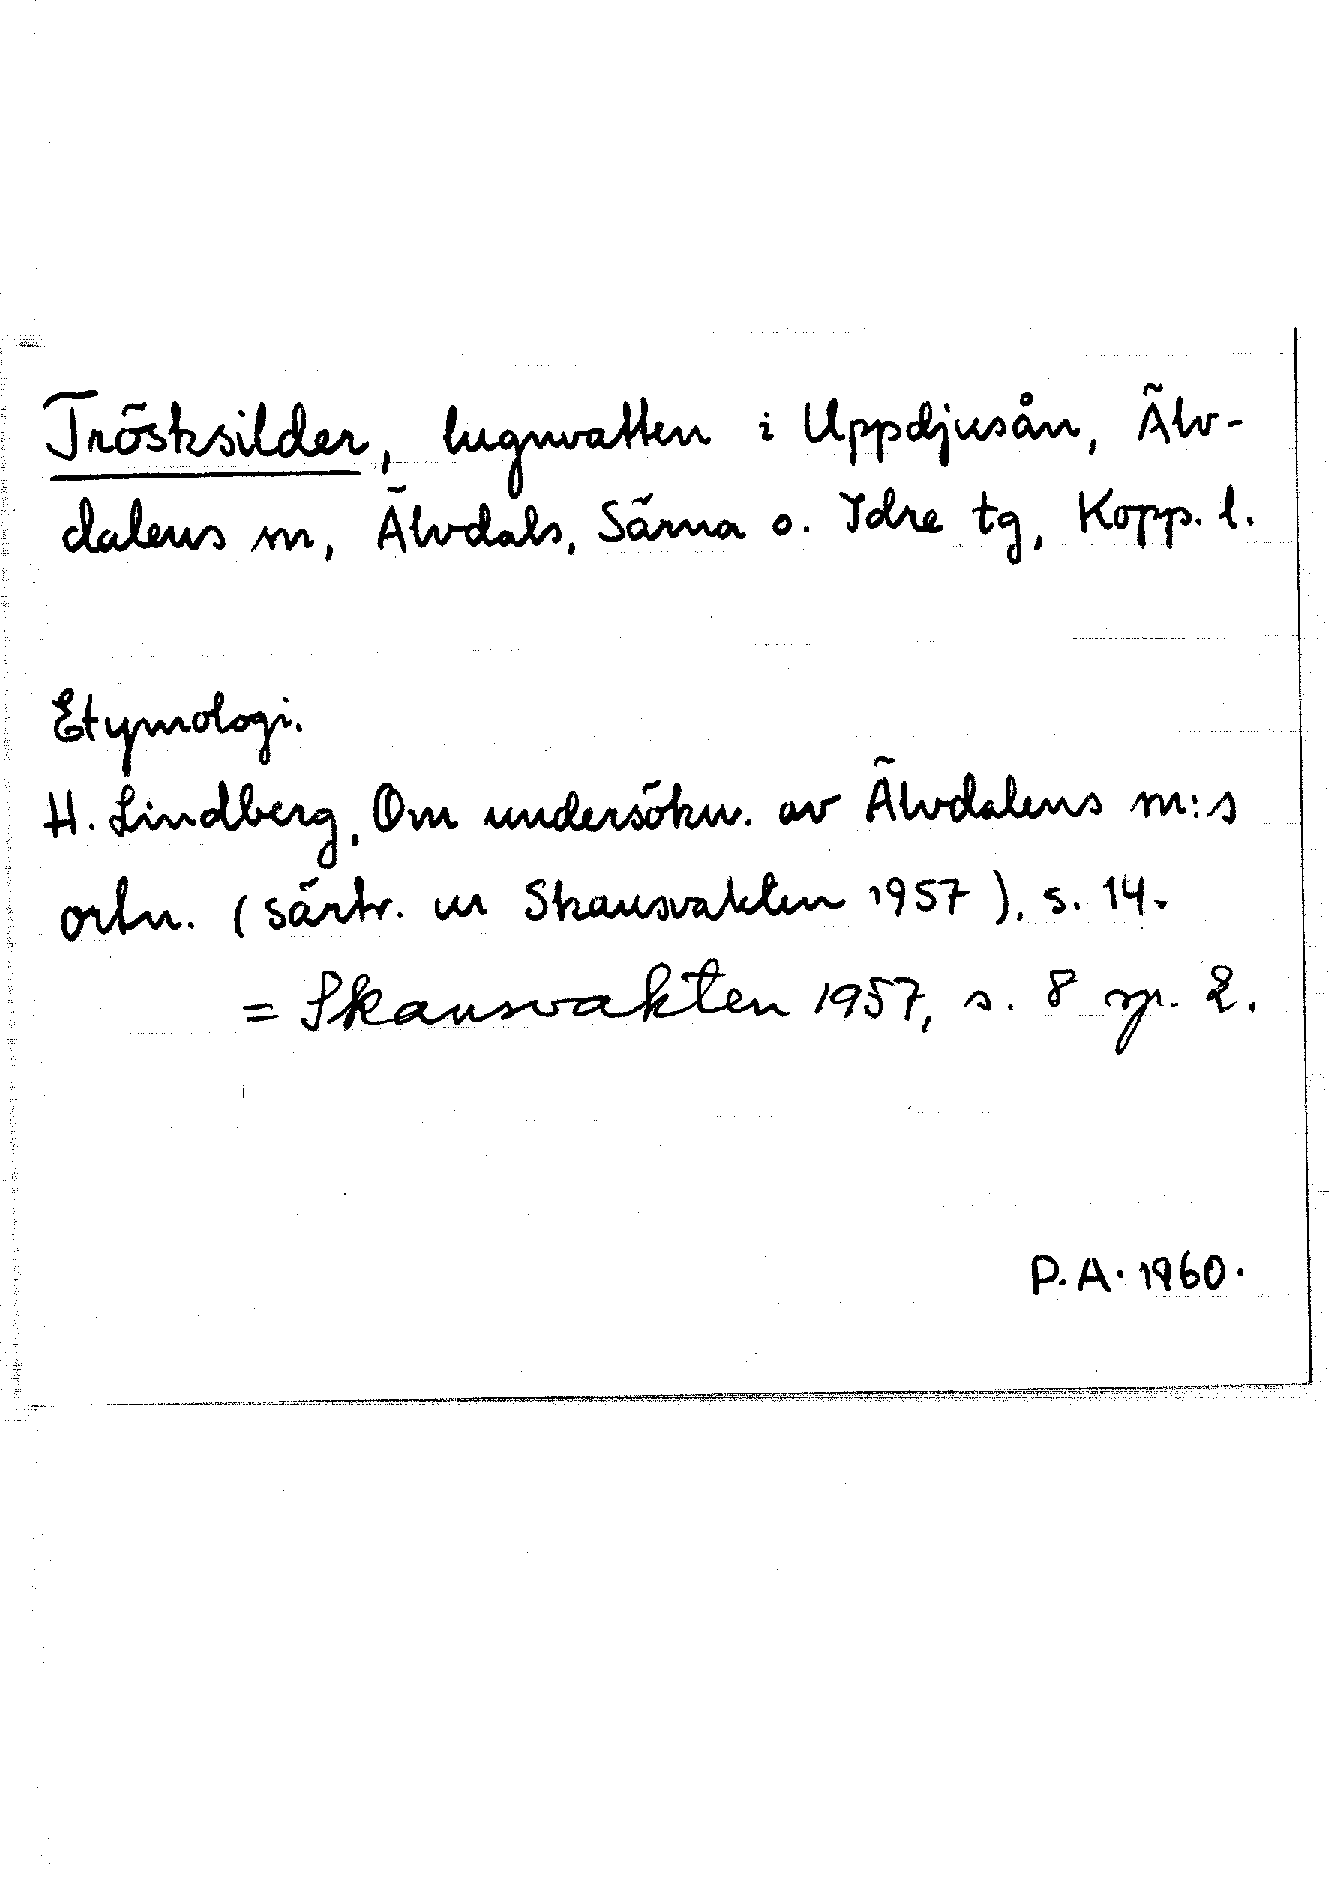 Trösksilder, lugnvatten i Uppdjusån, Älv-
dalens m, Älvdals, Särna o. Idre tg, Kopp. l.
Etymologi.
H. Lindberg, Om undersökn. av Älvdalens m:s
ortn. (särtr. ur Skansvakten 1957), s. 14.
= Skansvakten 1957, s. 8 sp. 2.
P.A. 1960.